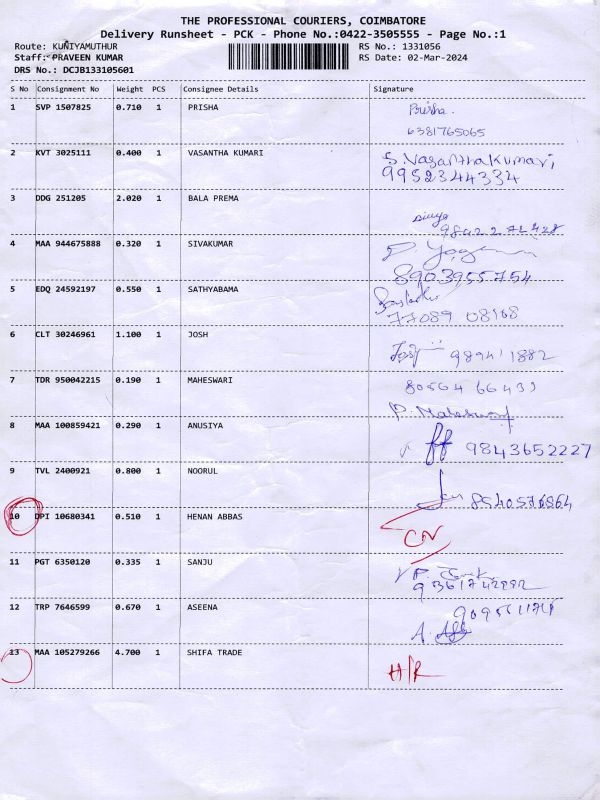 THE PROFESSIONAL COURIERS, COIMBATORE
Delivery Runsheet - PCK - Phone No.:0422-3505555 - Page No.:1
Route: KUNIYAMUTHUR RS No.: 1331056
Staff: PRAVEEN KUMAR RS Date: 02-Mar-2024
DRS No.: DCJB133105601
S No Consignment No Weight PCS Consignee Details Signature
1 SVP 1507825 0.710 1 PRISHA Prisha.
6381765065
2 KVT 3025111 0.400 1 VASANTHA KUMARI S. Vasanthakumari,
9952344334
3 DDG 251205 2.020 1 BALA PREMA
4 MAA 944675888 0.320 1 SIVAKUMAR
8903955754
5 EDQ 24592197 0.550 1 SATHYABAMA
77089 08168
6 CLT 30246961 1.100 1 JOSH
7 TDR 950042215 0.190 1 MAHESWARI
8 MAA 100859421 0.290 1 ANUSIYA 9843652227
9 TVL 2400921 0.800 1 NOORUL
8540576864
10 DPI 10680341 0.510 1 HENAN ABBAS
CN
11 PGT 6350120 0.335 1 SANJU
12 TRP 7646599 0.670 1 ASEENA
13 MAA 105279266 4.700 1 SHIFA TRADE
H/R